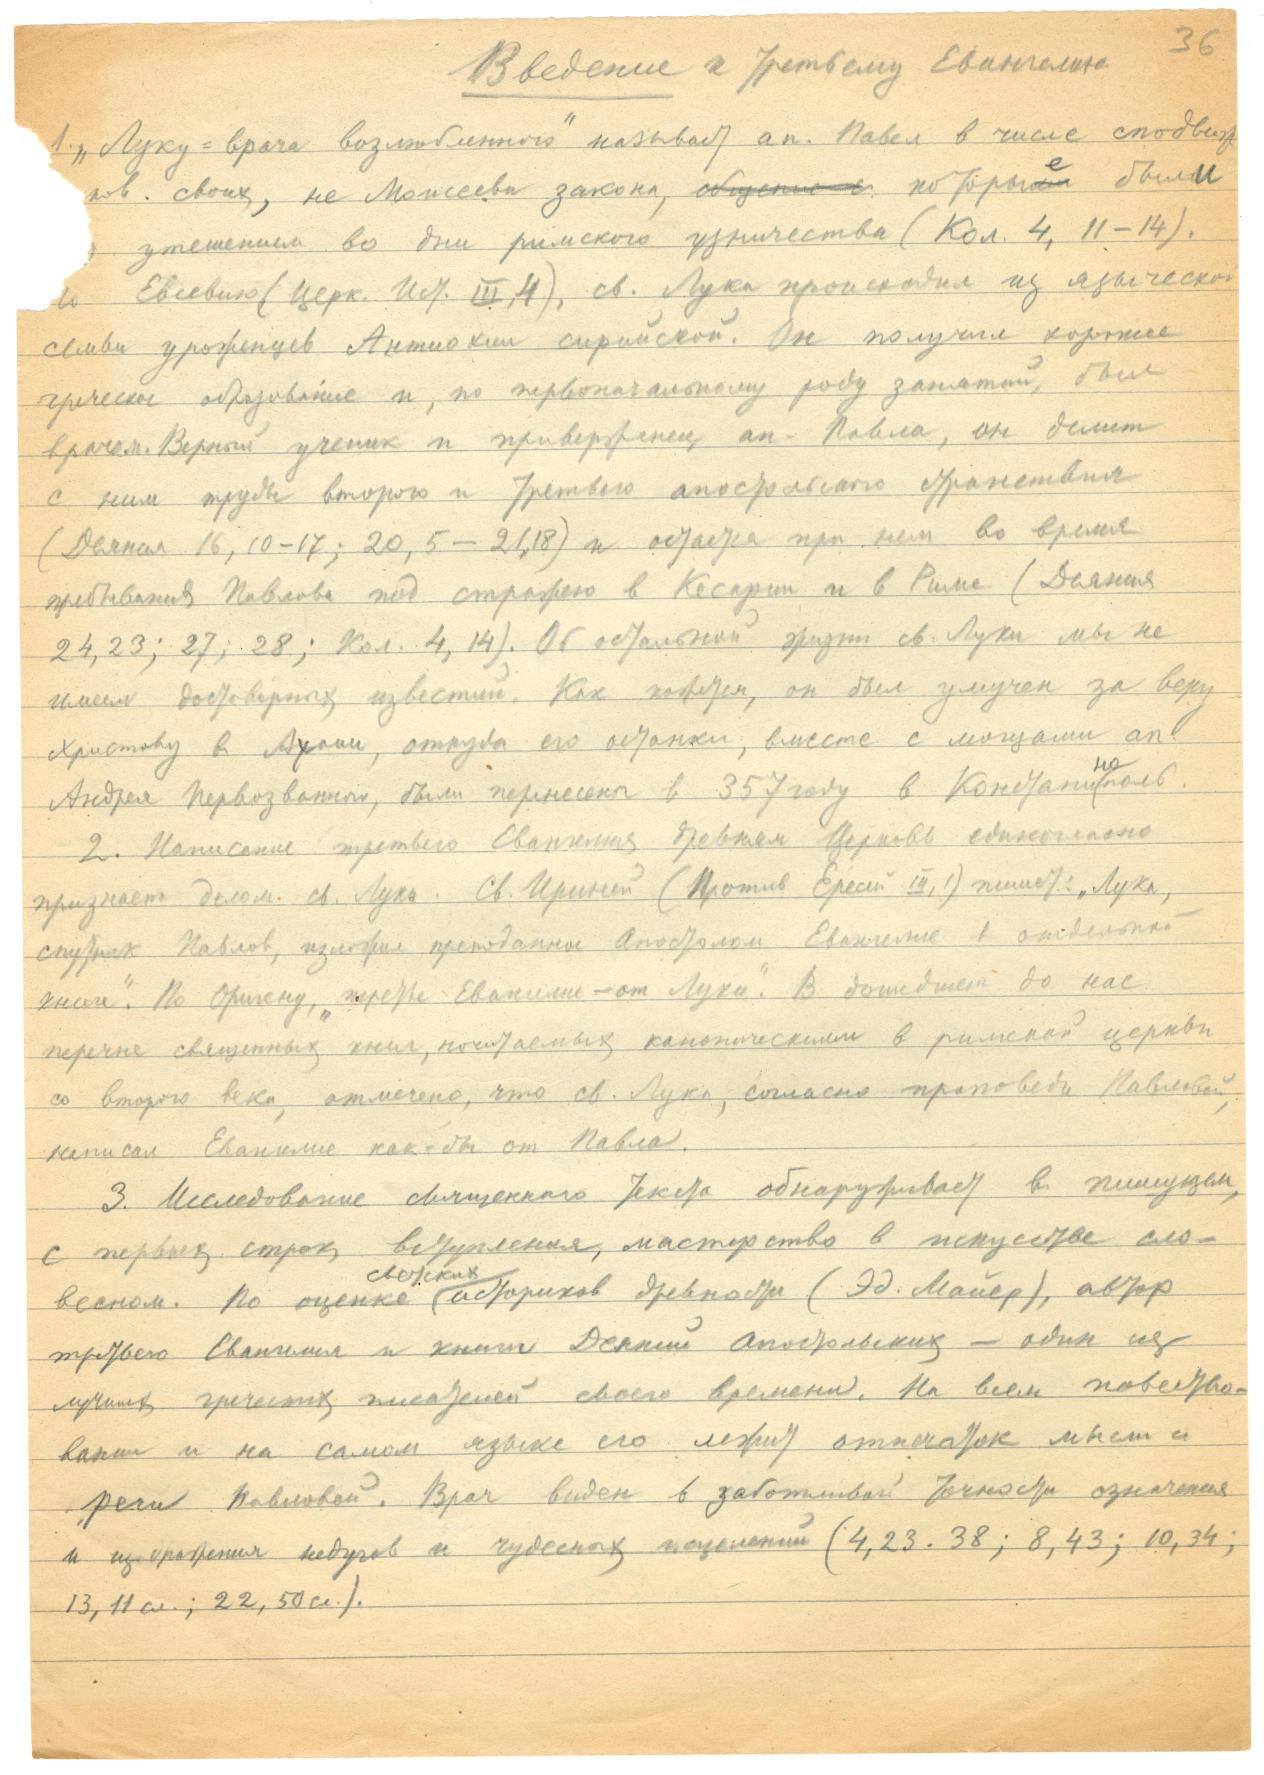 36
Введение к третьему Евангелию
1. „Луку = врача возлюбленного" называет ап. Павел в числе сподвиж
ков. своих, не Моисеева закона, которые были
утешением во дни римского узничества (Кол. 4, 11–14).
Евсевию (Церк. Ист. III, 4), св. Лука происходил из языческой
семьи уроженцев Антиохии сирийской. Он получил хорошее
греческое образование и, по первоначальному роду занятий, был
врачем. Верный ученик и приверженец ап. Павла, он делит
с ним труды второго и третьего апостольского странствия
(Деяния 16, 10–17; 20, 5 – 21,18) и остается при нем во время
пребывания Павлова под стражею в Кесарии и в Риме (Деяния
24, 23; 27; 28; Кол. 4, 14). Об остальной жизни св. Луки мы не
имеем достоверных известий. Как кажется, он был умучен за веру
Христову в Ахаии, откуда его останки, вместе с мощами ап.
Андрея Первозванного, были перенесены в 357 году в Константинополь.
2. Написание третьего Евангелия древняя Церковь единогласно
признает делом св. Луки. Св. Ириней (Против Ересей III, 1) пишет: „Лука,
спутник Павлов, изложил преподанное Апостолом Евангелие в отдельной
книге". По Оригену, „третье Евангелие – от Луки". В дошедшем до нас
перечне священных книг, почитаемых каноническими в римской церкви
со второго века, отмечено, что св. Лука, согласно проповеди Павловой,
написал Евангелие как-бы от Павла.
3. Исследование священного текста обнаруживает в пишущем,
с первых строк вступления, мастерство в искусстве сло-
весном. По оценке светских историков древности (Эд. Майер), автор
третьего Евангелия и книги Деяний Апостольских – один из
лучших греческих писателей своего времени. На всем повество-
вании и на самом языке его лежит отпечаток мысли и
речи Павловой. Врач виден в заботливой точности означения
и изображения недугов и чудесных исцелений (4, 23. 38; 8, 43; 10, 34;
13, 11 сл.; 22, 50 сл.).